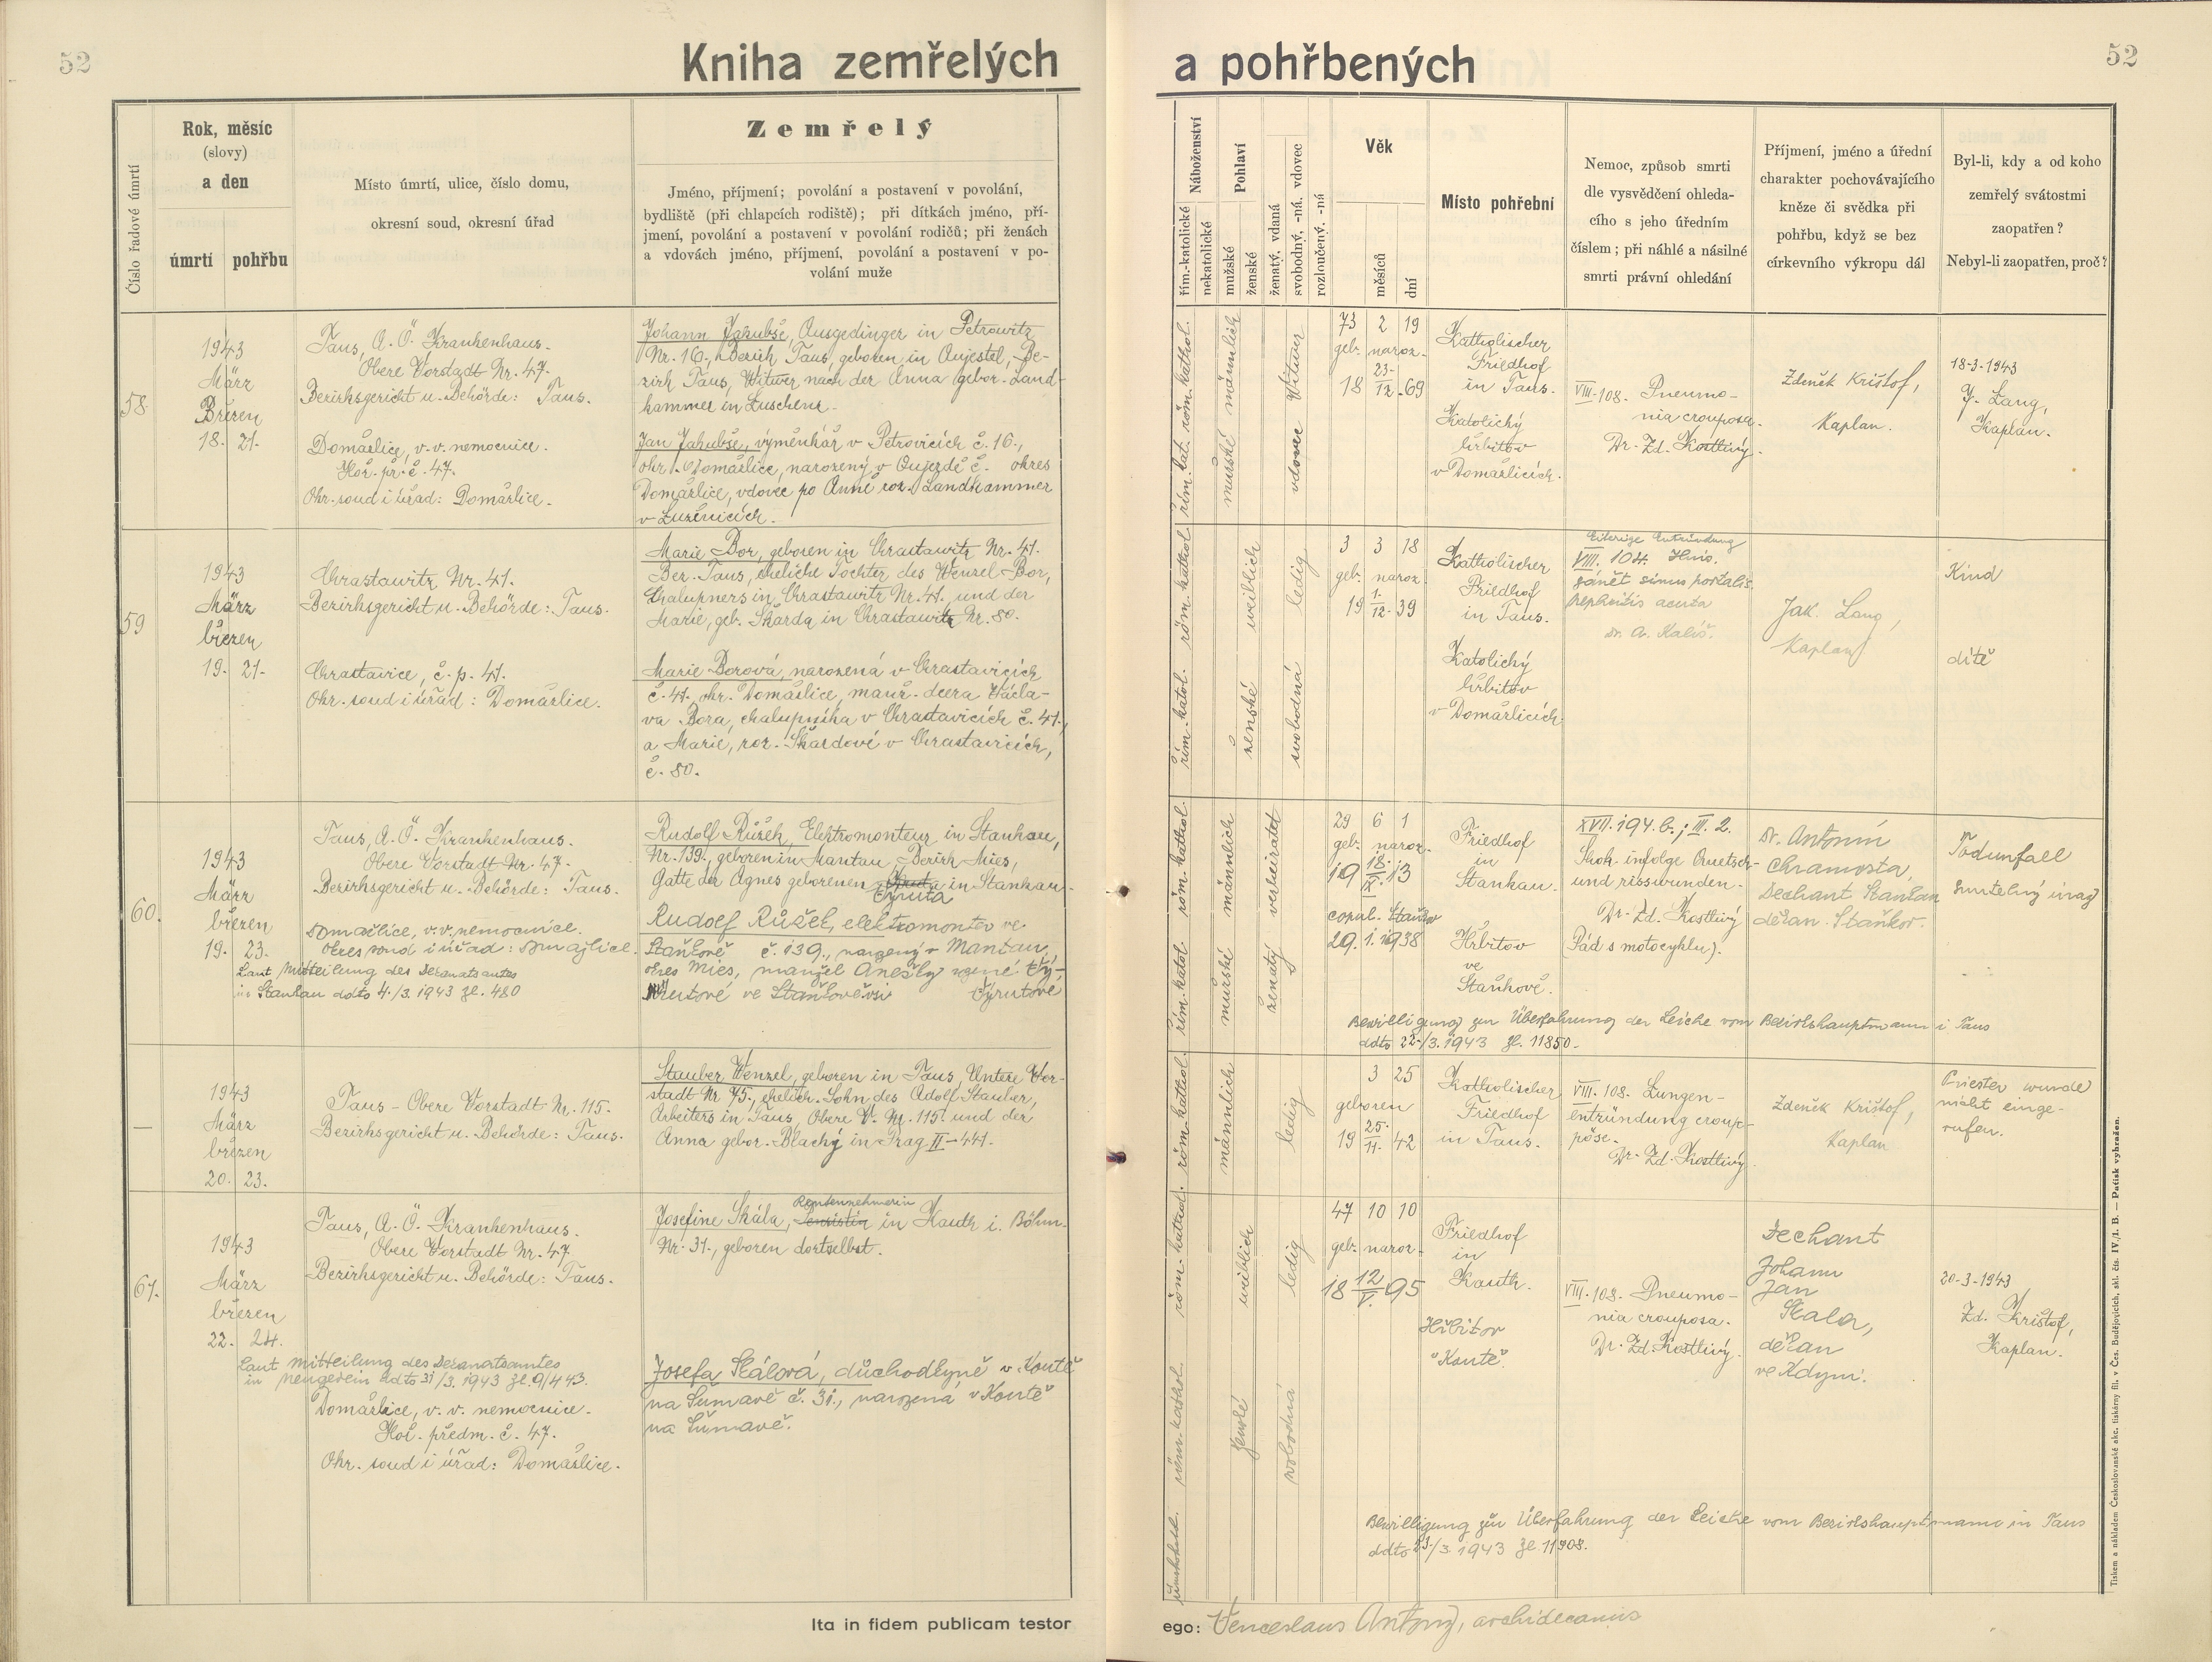 52
Kniha zemřelých
a pohřbených
52
Číslo řadové úmrtí
Rok, měsíc
(slovy)
a den
úmrtí
pohřbu
Místo úmrtí, ulice, číslo domu,
okresní soud, okresní úřad
Zemřelý
Jméno, příjmení; povolání a postavení v povolání,
bydliště (při chlapcích rodiště); při dítkách jméno, pří-
jmení, povolání a postavení v povolání rodičů; při ženách
a vdovách jméno, příjmení, povolání a postavení v po-
volání muže
Náboženství
řím.-katolické
nekatolické
Pohlaví
mužské
ženské
ženatý, vdaná
svobodný, -ná, vdovec
rozloučený, -ná
Věk
měsíců
dní
Místo pohřební
Nemoc, způsob smrti
dle vysvědčení ohleda-
cího s jeho úředním
číslem; při náhlé a násilné
smrti právní ohledání
Příjmení, jméno a úřední
charakter pochovávajícího
kněze či svědka při
pohřbu, když se bez
církevního výkropu dál
Byl-li, kdy a od koho
zemřelý svátostmi
zaopatřen?
Nebyl-li zaopatřen, proč?
58
1943
März
Březen
18. 21.
Taus, A. Ö. Krankenhaus.
Obere Vorstadt Nr. 47.
Bezirksgericht u. Behörde: Taus.
Domažlice, v. v. nemocnice.
Hoř. př. č. 47.
Okr. soud i úřad: Domažlice.
Johann Jakubše, Ausgedinger in Petrowitz
Nr. 16, Bezirk Taus, geboren in Aujestel, Be-
zirk Taus, Witwer nach der Anna gebor. Land-
hammer in Luschenz.
Jan Jakubše, výměnkář v Petrovicích č. 16,
okr. Domažlice, narozený v Oujezdě č. okres
Domažlice, vdovec po Anně roz. Landhammer
v Luženicích.
řím. kat. röm. kathol.
mužské männlich
vdovec Witwer
73 2 19
geb. naroz.
18 23./12. 69
Katholischer
Friedhof
in Taus.
Katolický
hřbitov
v Domažlicích.
VIII. 108. Pneumo-
nia crouposa.
Dr. Zd. Kostlivý.
Zdeněk Krištof,
Kaplan.
18-3-1943
J. Lang,
Kaplan.
59
1943
März
březen
19. 21.
Chrastawitz Nr. 41.
Bezirksgericht u. Behörde: Taus.
Chrastavice, č. p. 41.
Okr. soud i úřad: Domažlice.
Marie Bor, geboren in Chrastawitz Nr. 41.
Bez. Taus, eheliche Tochter des Wenzel Bor,
Chalupners in Chrastawitz Nr. 41, und der
Marie, geb. Škarda in Chrastawitz Nr. 80.
Marie Borová, narozená v Chrastavicích
č. 41, okr. Domažlice, manž. dcera Václa-
va Bora, chalupníka v Chrastavicích č. 41,
a Marie, roz. Škardové v Chrastavicích,
č. 80.
řím. katol. röm. kathol.
ženské weiblich
svobodná ledig
3 3 18
geb. naroz.
19 1./12. 39
Katholischer
Friedhof
in Taus.
Katolický
hřbitov
v Domažlicích.
Eiterige Entzündung
VIII. 104. Hnis.
zánět
nephritis acuta
Dr. A. Kališ.
Jak. Lang,
Kaplan
Kind
dítě
60.
1943
März
březen
19. 23.
Taus, A. Ö. Krankenhaus.
Obere Vorstadt Nr. 47.
Bezirksgericht u. Behörde: Taus.
Domažlice, v. v. nemocnice.
Okres soud i úřad: Domažlice.
Laut Mitteilung des Dekanatsamtes
in Stankau ddto 4./3. 1943 Zl. 480
Rudolf Růžek, Elektromonteur in Stankau,
Nr. 139, geboren in Mantau, Bezirk Mies,
Gatte der Agnes geborenen in Stankau.
Tyruta
Rudolf Růžek, elektromontér ve
Staňkově č. 139., narozený v Mantau,
okres Mies, manžel Anežky rozené
ve Staňkověvsi Tyrutové
řím. katol. röm. kathol.
mužské männlich
ženatý verheiratet
29 6 1
geb. naroz.
19 18./IX. 13
copul. Staňkov
29. 1. 1938
Friedhof
in
Stankau.
Hřbitov
ve
Staňkově.
XVII. 194. b.; III. 2.
Shok infolge Quetsch-
und risswunden.
Dr. Zd. Kostlivý
(Pád s motocyklu).
Dr. Antonín
Chramosta,
Dechant Stankau
děkan Staňkov.
Todunfall
Smrtelný úraz
Bewilligung zur Überfahrung der Leiche vom Bezirkshauptmann i Taus
ddto 22./3. 1943 Zl. 11850.
—
1943
März
březen
20. 23.
Taus - Obere Vorstadt Nr. 115.
Bezirksgericht u. Behörde: Taus.
Stauber Wenzel, geboren in Taus, Untere Vor-
stadt Nr 75., ehelich. Sohn des Adolf Stauber,
Arbeiters in Taus, Obere V. Nr. 115. und der
Anna gebor. Blachý in Prag II-441.
röm. kathol.
männlich
ledig
3 25
geboren
19 25./11. 42
Katholischer
Friedhof
in Taus.
VIII. 108. Lungen-
entzündung croup-
pöse.
Dr. Zd. Kostlivý.
Zdeněk Krištof,
Kaplan
Priester wurde
nicht einge-
rufen.
61.
1943
März
březen
22. 24.
Taus, A. Ö. Krankenhaus.
Obere Vorstadt Nr. 47
Bezirksgericht u. Behörde: Taus.
Laut Mitteilung des Dekanatsamtes
in Neugedein ddto 31/3. 1943 Zl. 9/443.
Domažlice, v. v. nemocnice.
Hoř. předm. č. 47.
Okr. soud i úřad: Domažlice.
Rentennehmerin
Josefine Skála, in Kauth i. Böhm.
Nr. 31., geboren dortselbst.
Josefa Skálová, důchodkyně v Koutě
na Šumavě č. 31., narozená v Koutě
na Šumavě.
řím. kathol. röm. kathol.
ženské weiblich
svobodná ledig
47 10 10
geb. naroz.
18 12/V. 95
Friedhof
in
Kauth.
Hřbitov
v Koutě.
VIII. 108. Pneumo-
nia crouposa.
Dr. Zd. Kostlivý.
Dechant
Johann
Jan
Skala,
děkan
ve Kdyni.
20-3-1943
Zd. Krištof,
Kaplan.
Bewilligung zur Überfahrung der Leiche vom Bezirkshauptmann in Taus
ddto 23./3. 1943 Zl 11908.
Ita in fidem publicam testor
ego: Venceslaus Antony, archidecanus
Tiskem a nákladem Českoslovanské akc. tiskárny fil. v Čes. Budějovicích, skl. čís. IV./1. B. — Patisk vyhražen.